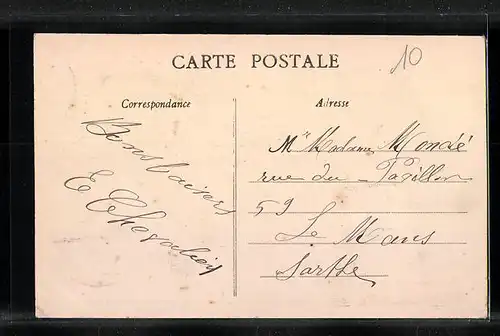 CARTE POSTALE
10
Correspondance
Bons baisers
E Chevalier
Adresse
Mr Madame Mondé
rue du Pavillon
59
Le Mans
Sarthe